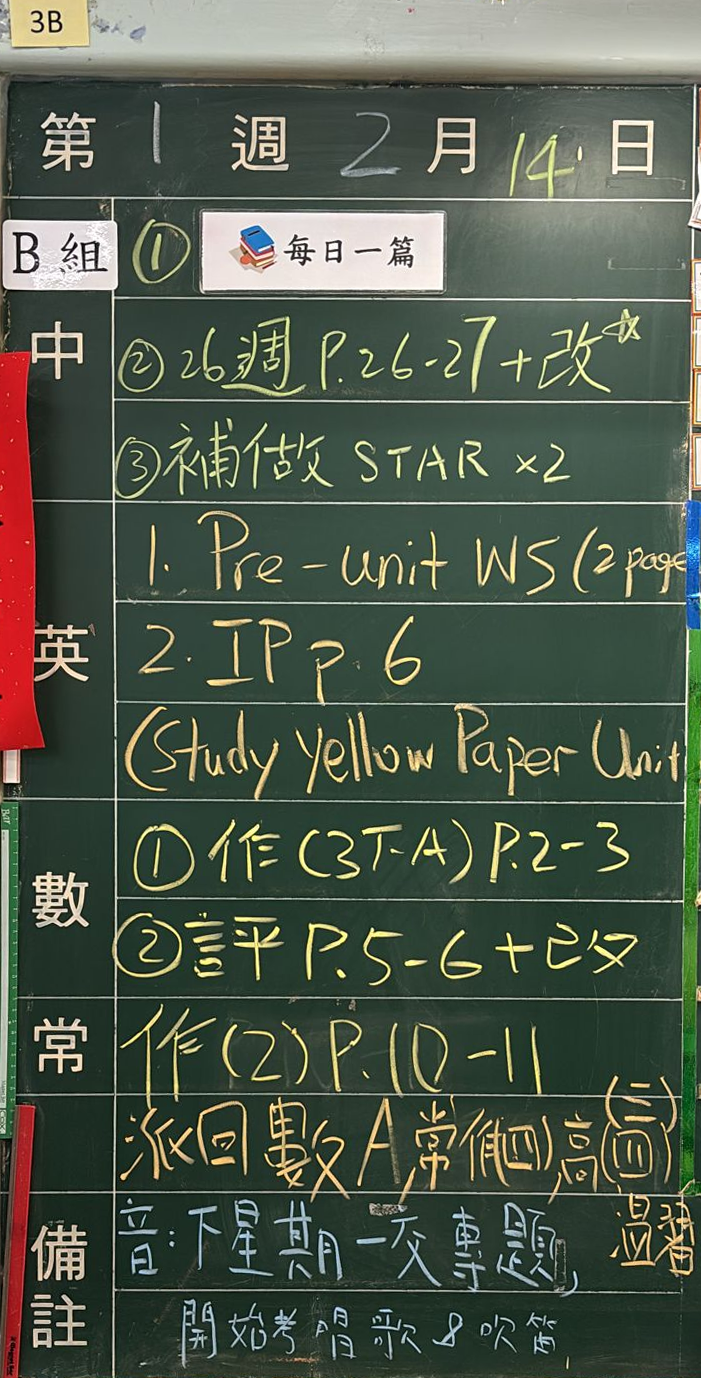 3B
第 1 週 2 月 14 日
B組 ① 每日一篇
中 ② 26週 P.26-27+改
③ 補做 STAR ×2
1. Pre-unit WS (2 page
英 2. IP p. 6
(Study Yellow Paper Unit
數 ① 作 (3下A) P.2-3
② 評 P.5-6+改
常 作(2) P.10-11
派回數A,常作(四),高(三)(四)
溫習
備註 音:下星期一交專題,
開始考唱歌&吹笛